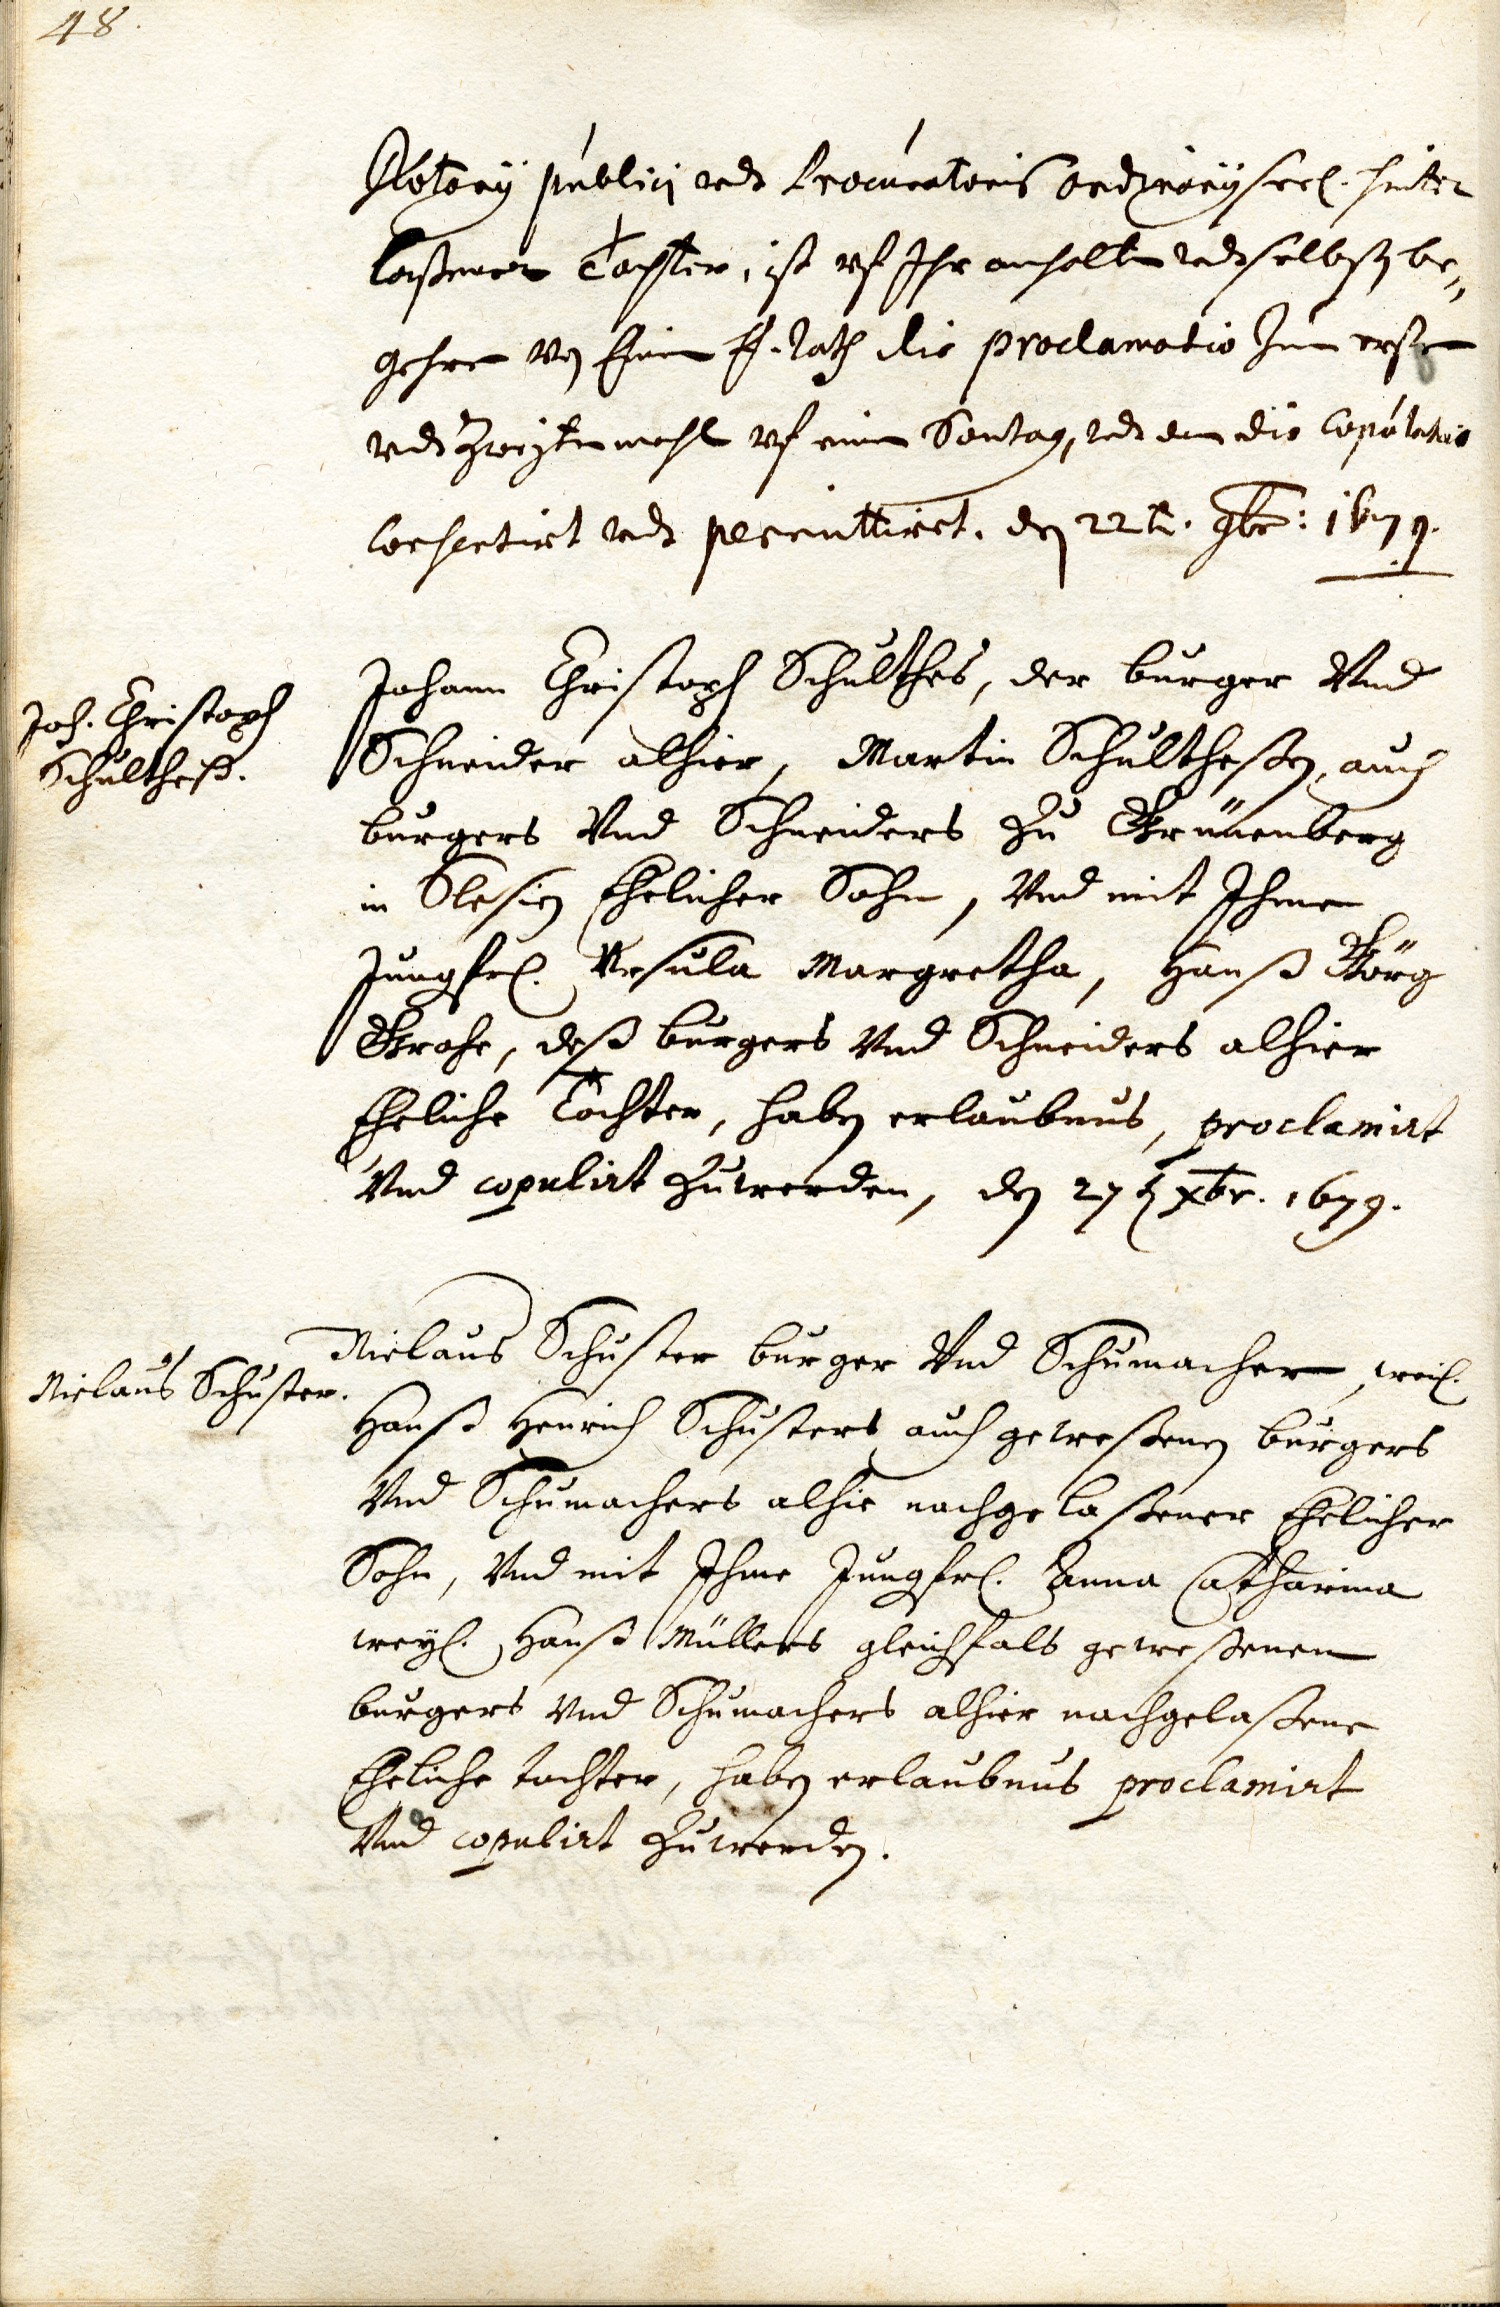 48.
Notory publici vndt Procuratoris ordinarÿ seel. hinter
laßener Tochter, ist vf Ihr anhalten vndt selbst be-
gehren von Einem E. Rath die proclamatio Zum ersten
vndt Zweyten mahl vf einen Sontag, vndt dan die Copulatio
vndt permittiret. den 22t. 9br: 1679.
Joh. Christoph
Schultheiß.
Johann Christoph Schulthes, der burger Vnd
Schneider alhier, Martin Schultheßen, auch
burgers Vnd Schneiders zu Grünenberg
in Slesien Ehelicher Sohn, Vnd mit Ihme
Jungfrl. Vrsula Margretha, Hanß Görg
Grohe, deß burgers Vnd Schneiders alhier
Eheliche Tochter, haben erlaubnus, proclamirt
Vnd copulirt zuwerden, den 27t xbr. 1679.
Niclaus Schuster.
Niclaus Schuster burger Vnd Schumacher, weil.
Hanß Henrich Schusters auch geweßenen burgers
Vnd Schumachers alhie nachgelaßener Ehelicher
Sohn, Vnd mit Ihme Jungfrl. Anna Catharina
weyl. Hanß Müllers gleichfals geweßenen
burgers Vnd Schumachers alhier nachgelaßene
Eheliche tochter, haben erlaubnus proclamirt
Vnd copulirt zuwerden.